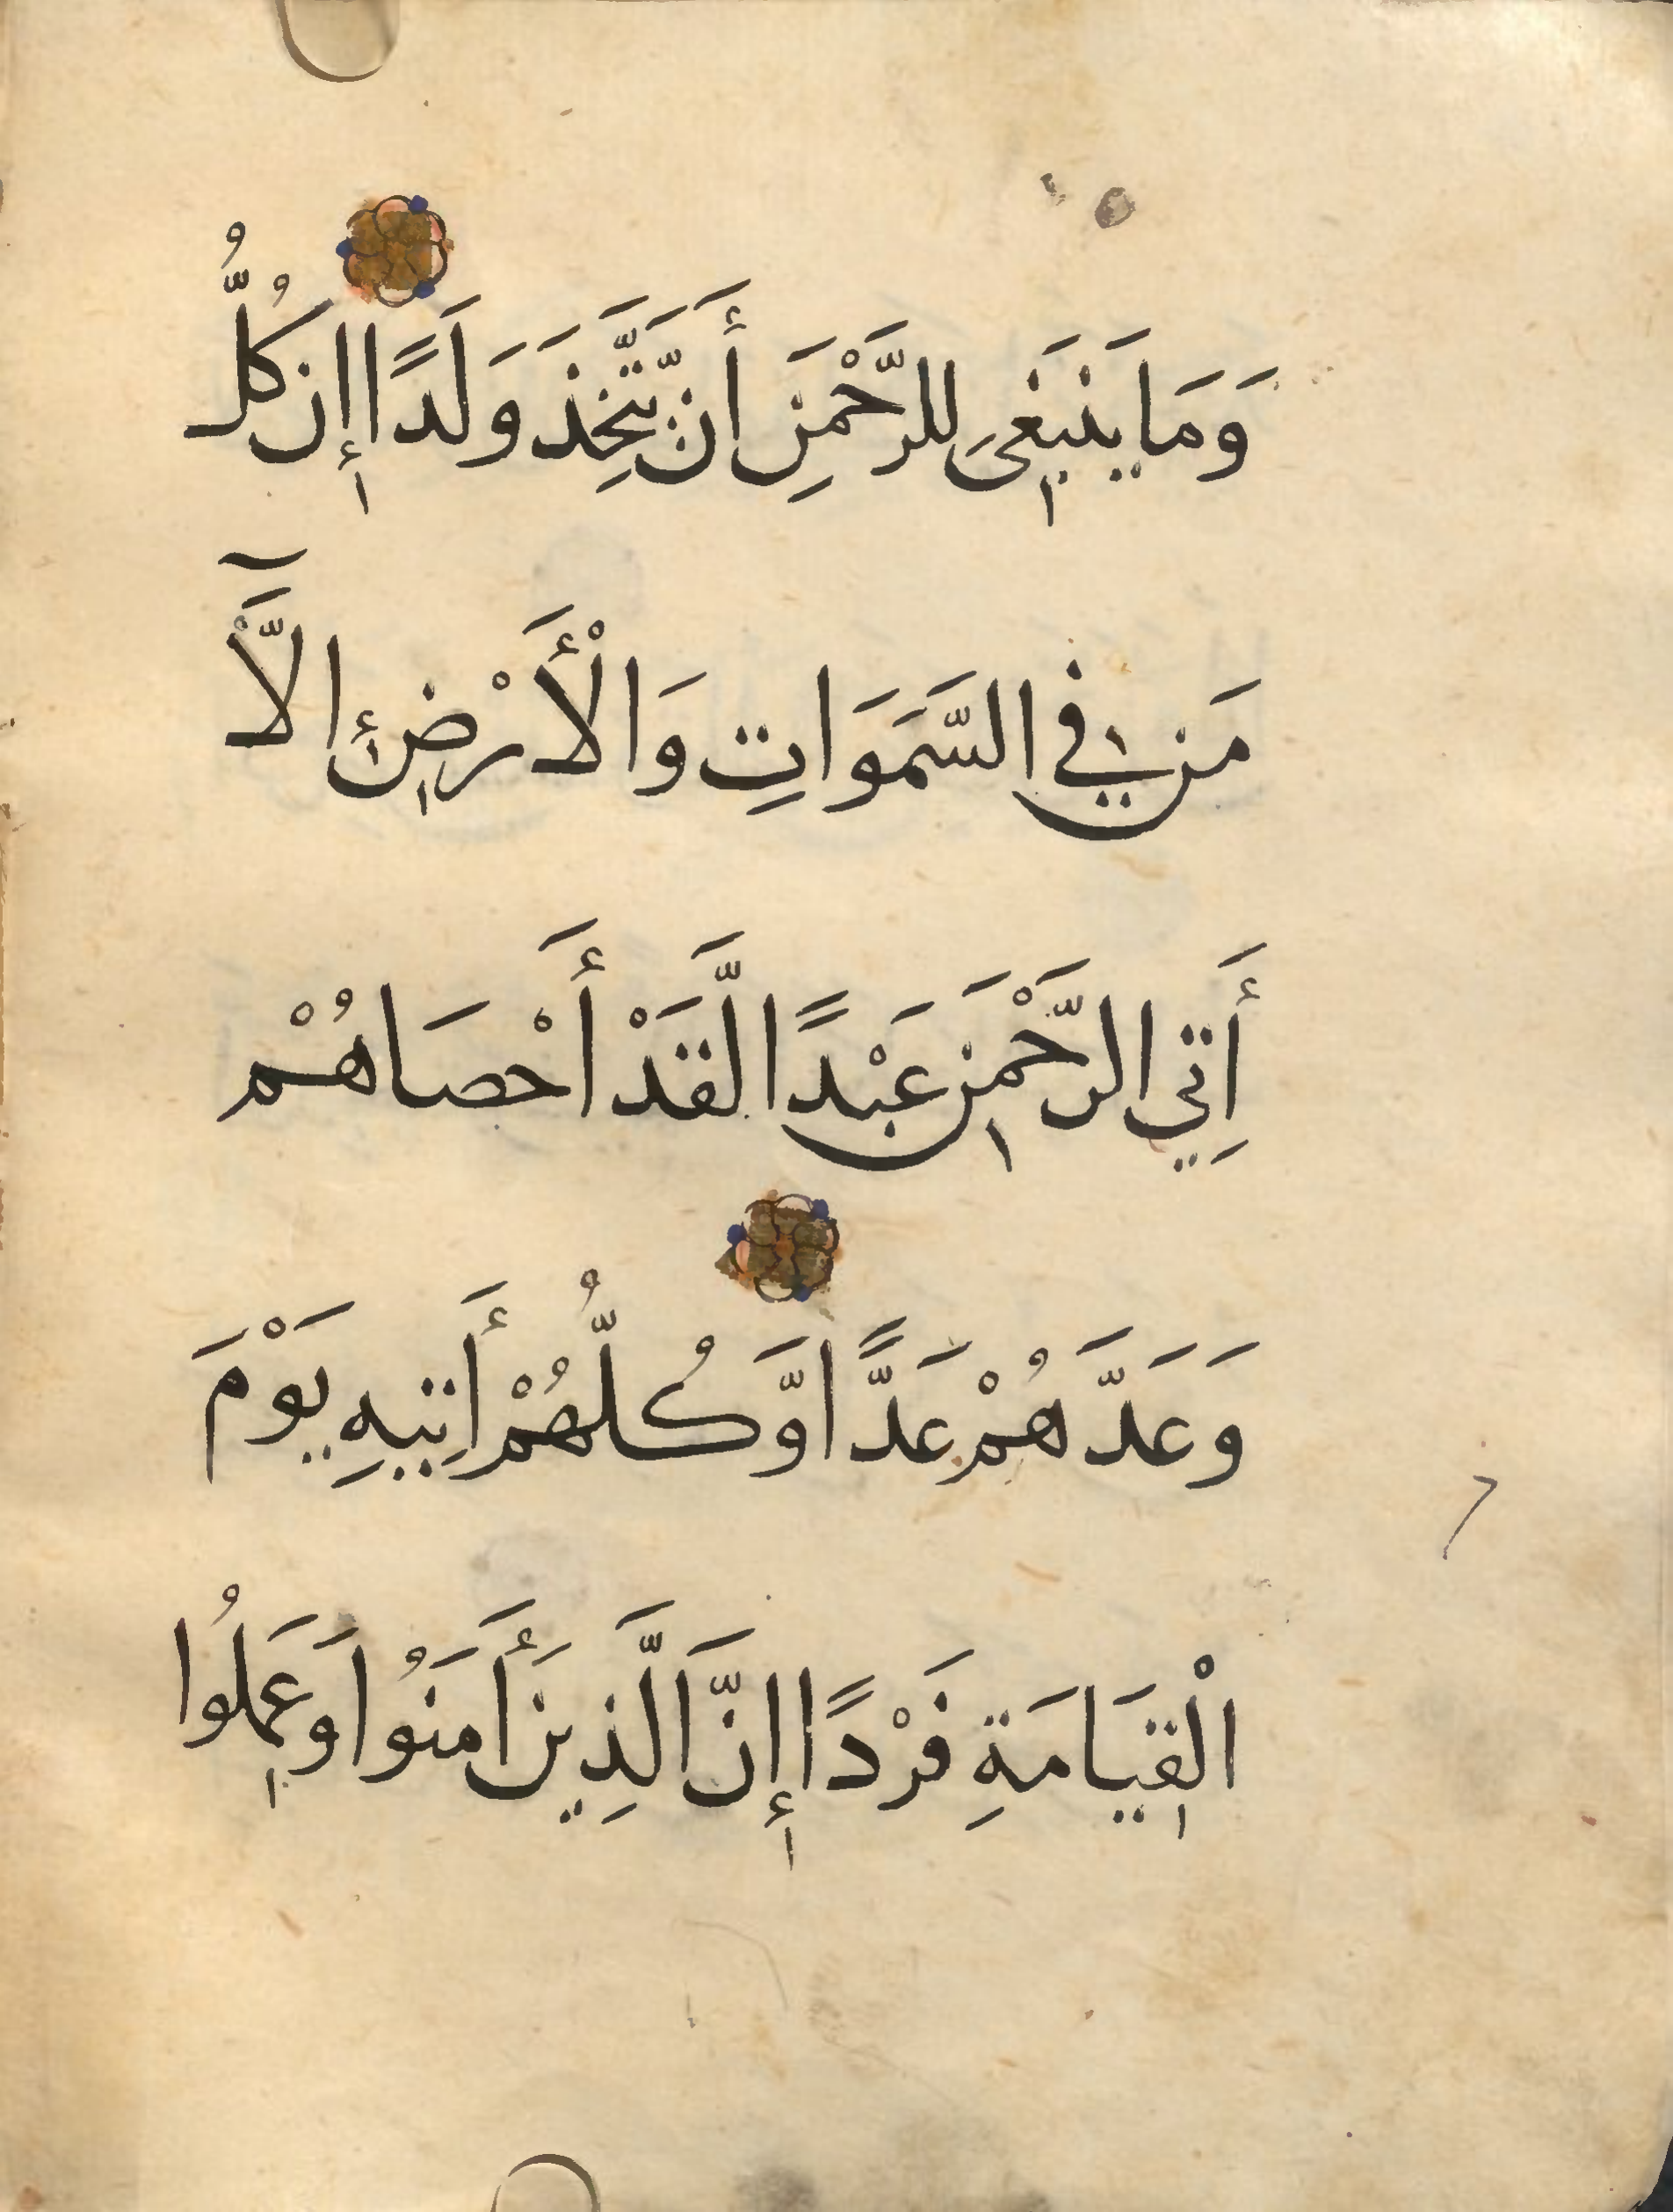 وَمَا يَنْبَغِى لِلرَّحْمٰنِ أَنْ يَّتَّخِذَ وَلَدًا إِن كُلُّ
مَن فِي السَّمَوَاتِ وَالْأَرْضِ إِلَّآ
أَتِي الرَّحْمَنِ عَبْدًا لَّقَدْ أَحْصَاهُمْ
وَعَدَّهُمْ عَدًّا وَّكُلُّهُمْ أَتِيهِ يَوْمَ
الْقِيَامَةِ فَرْدًا إِنَّ الَّذِينَ أَمَنُوا وَعَمِلُوا